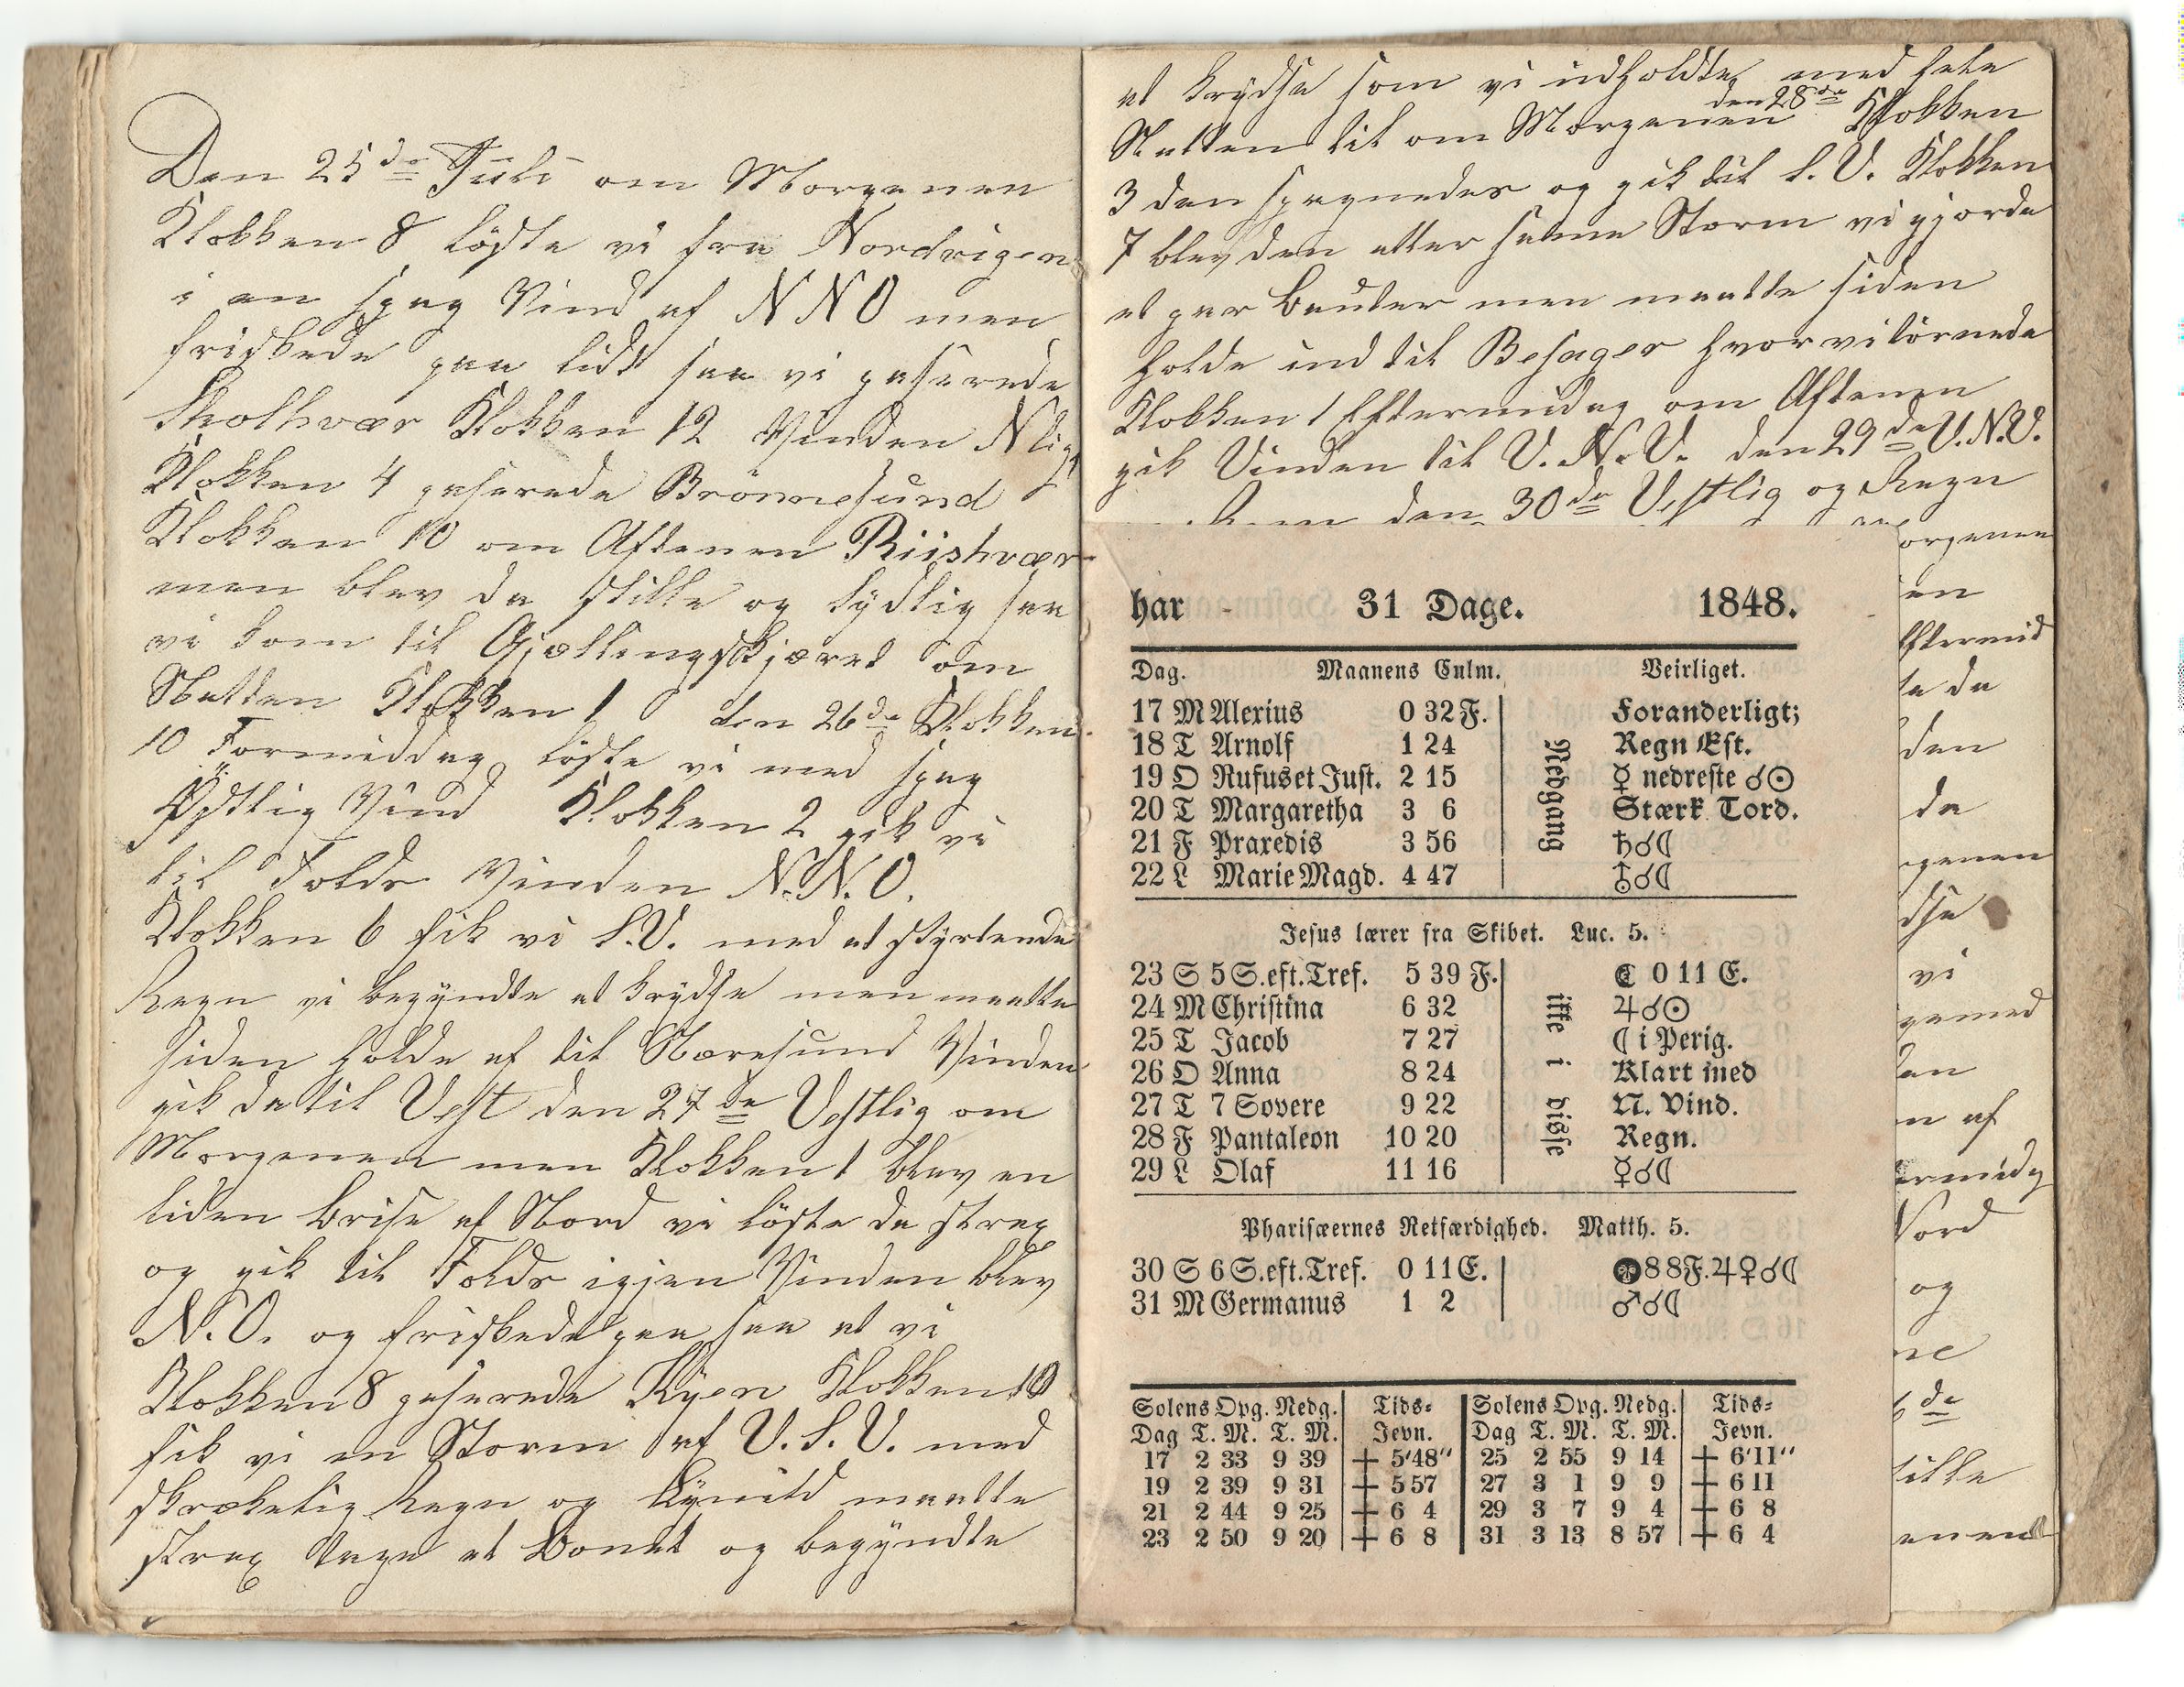 Den 25de Juli om Morgenen
Klokken 8 löste vi fra Nordvigen
i en spag Vind af NNO men
friskede paa lidt saa vi paserede
Skolhvær Klokken 12 Vinden Nlig
Klokken 4 paserede Brönnesund
Klokken 10 om Aftenen Riishvær
men blev da stille og sydlig saa
vi kom til Gjæslingskjæret om
Natten Klokken 1 den 26de Klokken
10 Formiddag löste vi med spag
Östlig Vind Klokken 2 gik vi
til Folds Vinden N.N.O.
Klokken 6 fik vi S.V. med et styrtende
Regn vi begyndte at krydse men maatte
siden holde af til Næresund Vinden
gik da til Vest den 27de Vestlig om
Morgenen men Klokken 1 blev en
liden Brise af Nord vi löste da strax
og gik til Folds igjen Vinden blev
N.O. og friskede paa saa at vi
Klokken 8 paserede Kyen Klokken 10
fik vi en Storm af V.S.V. med
skrækelig Regn og maatte
strax tage et Bonet og begyndte
at krydse som vi udholdte med hele
Natten til om Morgenen den 28de Klokken
3 den spagnedes og gik til S.V. Klokken
7 blev den atter samme Storm vi gjorde
et par Bauter men maatte siden
holde ind til Besager hvor vi törnede
Klokken 1 Eftermidag om Aftenen
gik Vinden til V.N.V. den 29de V.N.V.
den 30de Vestlig og Regn
har 31 Dage. 1848.
Dag. Maanens Culm. Veirliget.
17 M Alexius 0 32 F. Foranderligt;
18 T Arnolf 1 24 Regn Est.
19 O Rufus et Just. 2 15 ☿ nedreste ☌☉
20 T Margaretha 3 6 Stærk Tord.
21 F Praxedis 3 56 ♄☌☾
22 L Marie Magd. 4 47 ⛢☌☾
Nedgang
Jesus lærer fra Skibet. Luc. 5.
23 S 5 S. eft. Tref. 5 39 F. ☾ 0 11 E.
24 M Christina 6 32 ♃☌☉
25 T Jacob 7 27 ☾ i Perig.
26 O Anna 8 24 Klart med
27 T 7 Sovere 9 22 N. Vind.
28 F Pantaleon 10 20 Regn.
29 L Olaf 11 16 ☿☌☾
itte i disse
Pharisæernes Retfærdighed. Matth. 5.
30 S 6 S. eft. Tref. 0 11 E. ● 8 8 F. ♃♀☌☾
31 M Germanus 1 2 ♂☌☾
Solens Opg. Nedg. Tids- Solens Opg. Nedg. Tids-
Dag T. M. T. M. Jevn. Dag T. M. T. M. Jevn.
17 2 33 9 39 + 5'48" 25 2 55 9 14 + 6'11"
19 2 39 9 31 + 5 57 27 3 1 9 9 + 6 11
21 2 44 9 25 + 6 4 29 3 7 9 4 + 6 8
23 2 50 9 20 + 6 8 31 3 13 8 57 + 6 4
orgenen
en
Eftermid
te da
den
da
rgenen
dse
vi
gemed
ken
n af
ermidg
Nord
og
ne
de
stille
enen